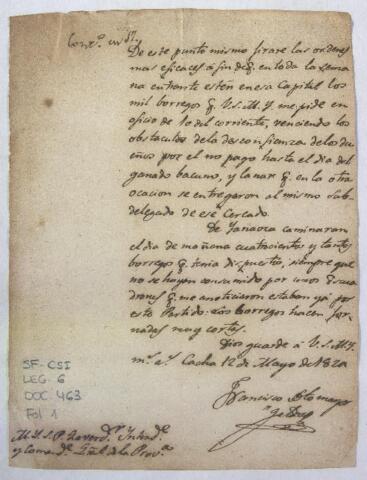 De este punto mismo firare las ordenes
mas eficaces á fin de q.e en toda la sema
na entrante estén en esa Capital los
mil borregos q.e V.S.M.Y. me pide en
oficio de 10 del corriente, venciendo los
obstaculos de la desconfianza de los du
eños por el no pago hasta el dia del
ganado bacuno, y lanar q.e en la otra
ocacion se entregaron al mismo Sub-
delegado de ese Cercado.
De Yanaoca caminaran
el dia de mañana cuatrocientos y tantos
borregos q.e tenia dispuestos, siempre que
no se hayan consumido por unos Escua
drones q.e me anoticiaron estaban yá por
esto Partido: Los borregos hacen jor-
nadas muy cortas.
Dios guarde á V.S.M.Y.
m.s a.s Cacha 12 de Mayo de 1820
Francisco
SF-CSI
LEG. 6
DOC. 463
Fol 1
M.Y.S.P. Intend.
y Comand.e Gral de la Prov.a